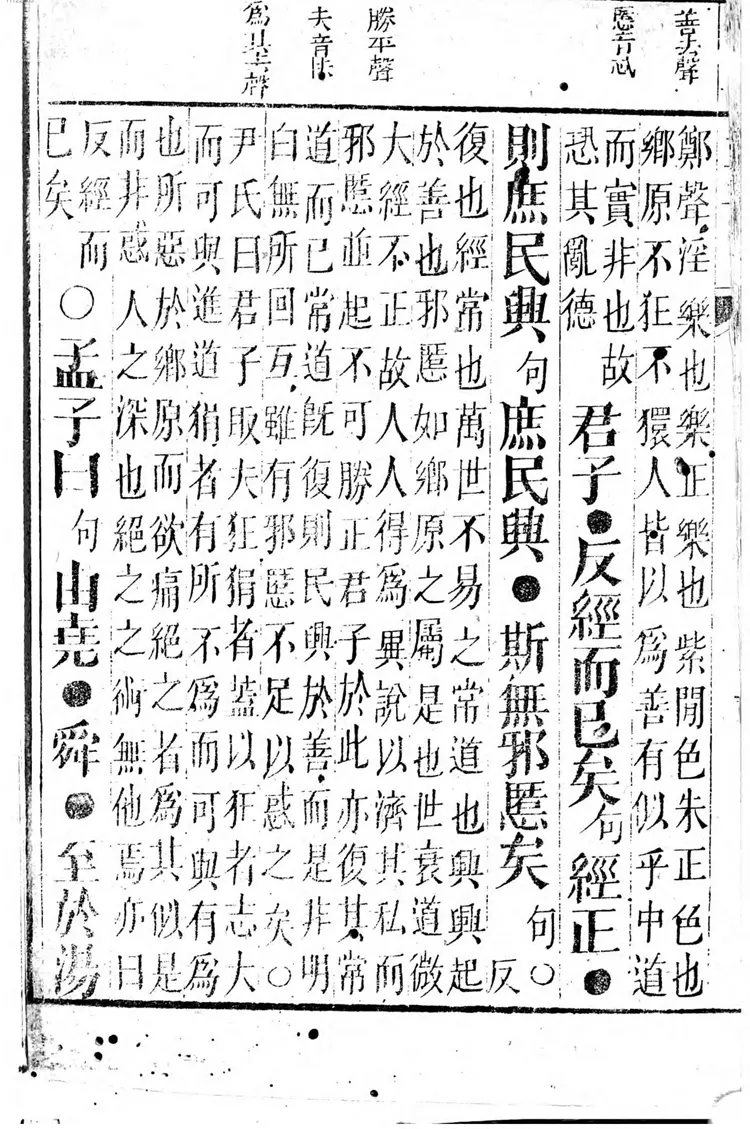 去聲
慝音忒
勝平聲
夫音扶
爲其去聲
鄭聲淫樂也樂正樂也紫閒色朱正色也
鄉原不狂不獧人皆以爲善有似乎中道
而實非也故
恐其亂德
君子●反經而已矣句經正●
則庶民興句庶民興●斯無邪慝矣句○反
復也經常也萬世不易之常道也興興起
於善也邪慝如鄉原之屬是也世衰道微
大經不正故人人得爲異說以濟其私而
邪慝並起不可勝正君子於此亦復其常
道而已常道既復則民興於善而是非明
白無所回互雖有邪慝不足以惑之矣○
尹氏曰君子取夫狂狷者蓋以狂者志大
而可與進道狷者有所不爲而可與有爲
也所惡於鄉原而欲痛絕之者爲其似是
而非惑人之深也絕之之術無他焉亦曰
反經而
已矣
○孟子曰句由堯●舜●至於湯